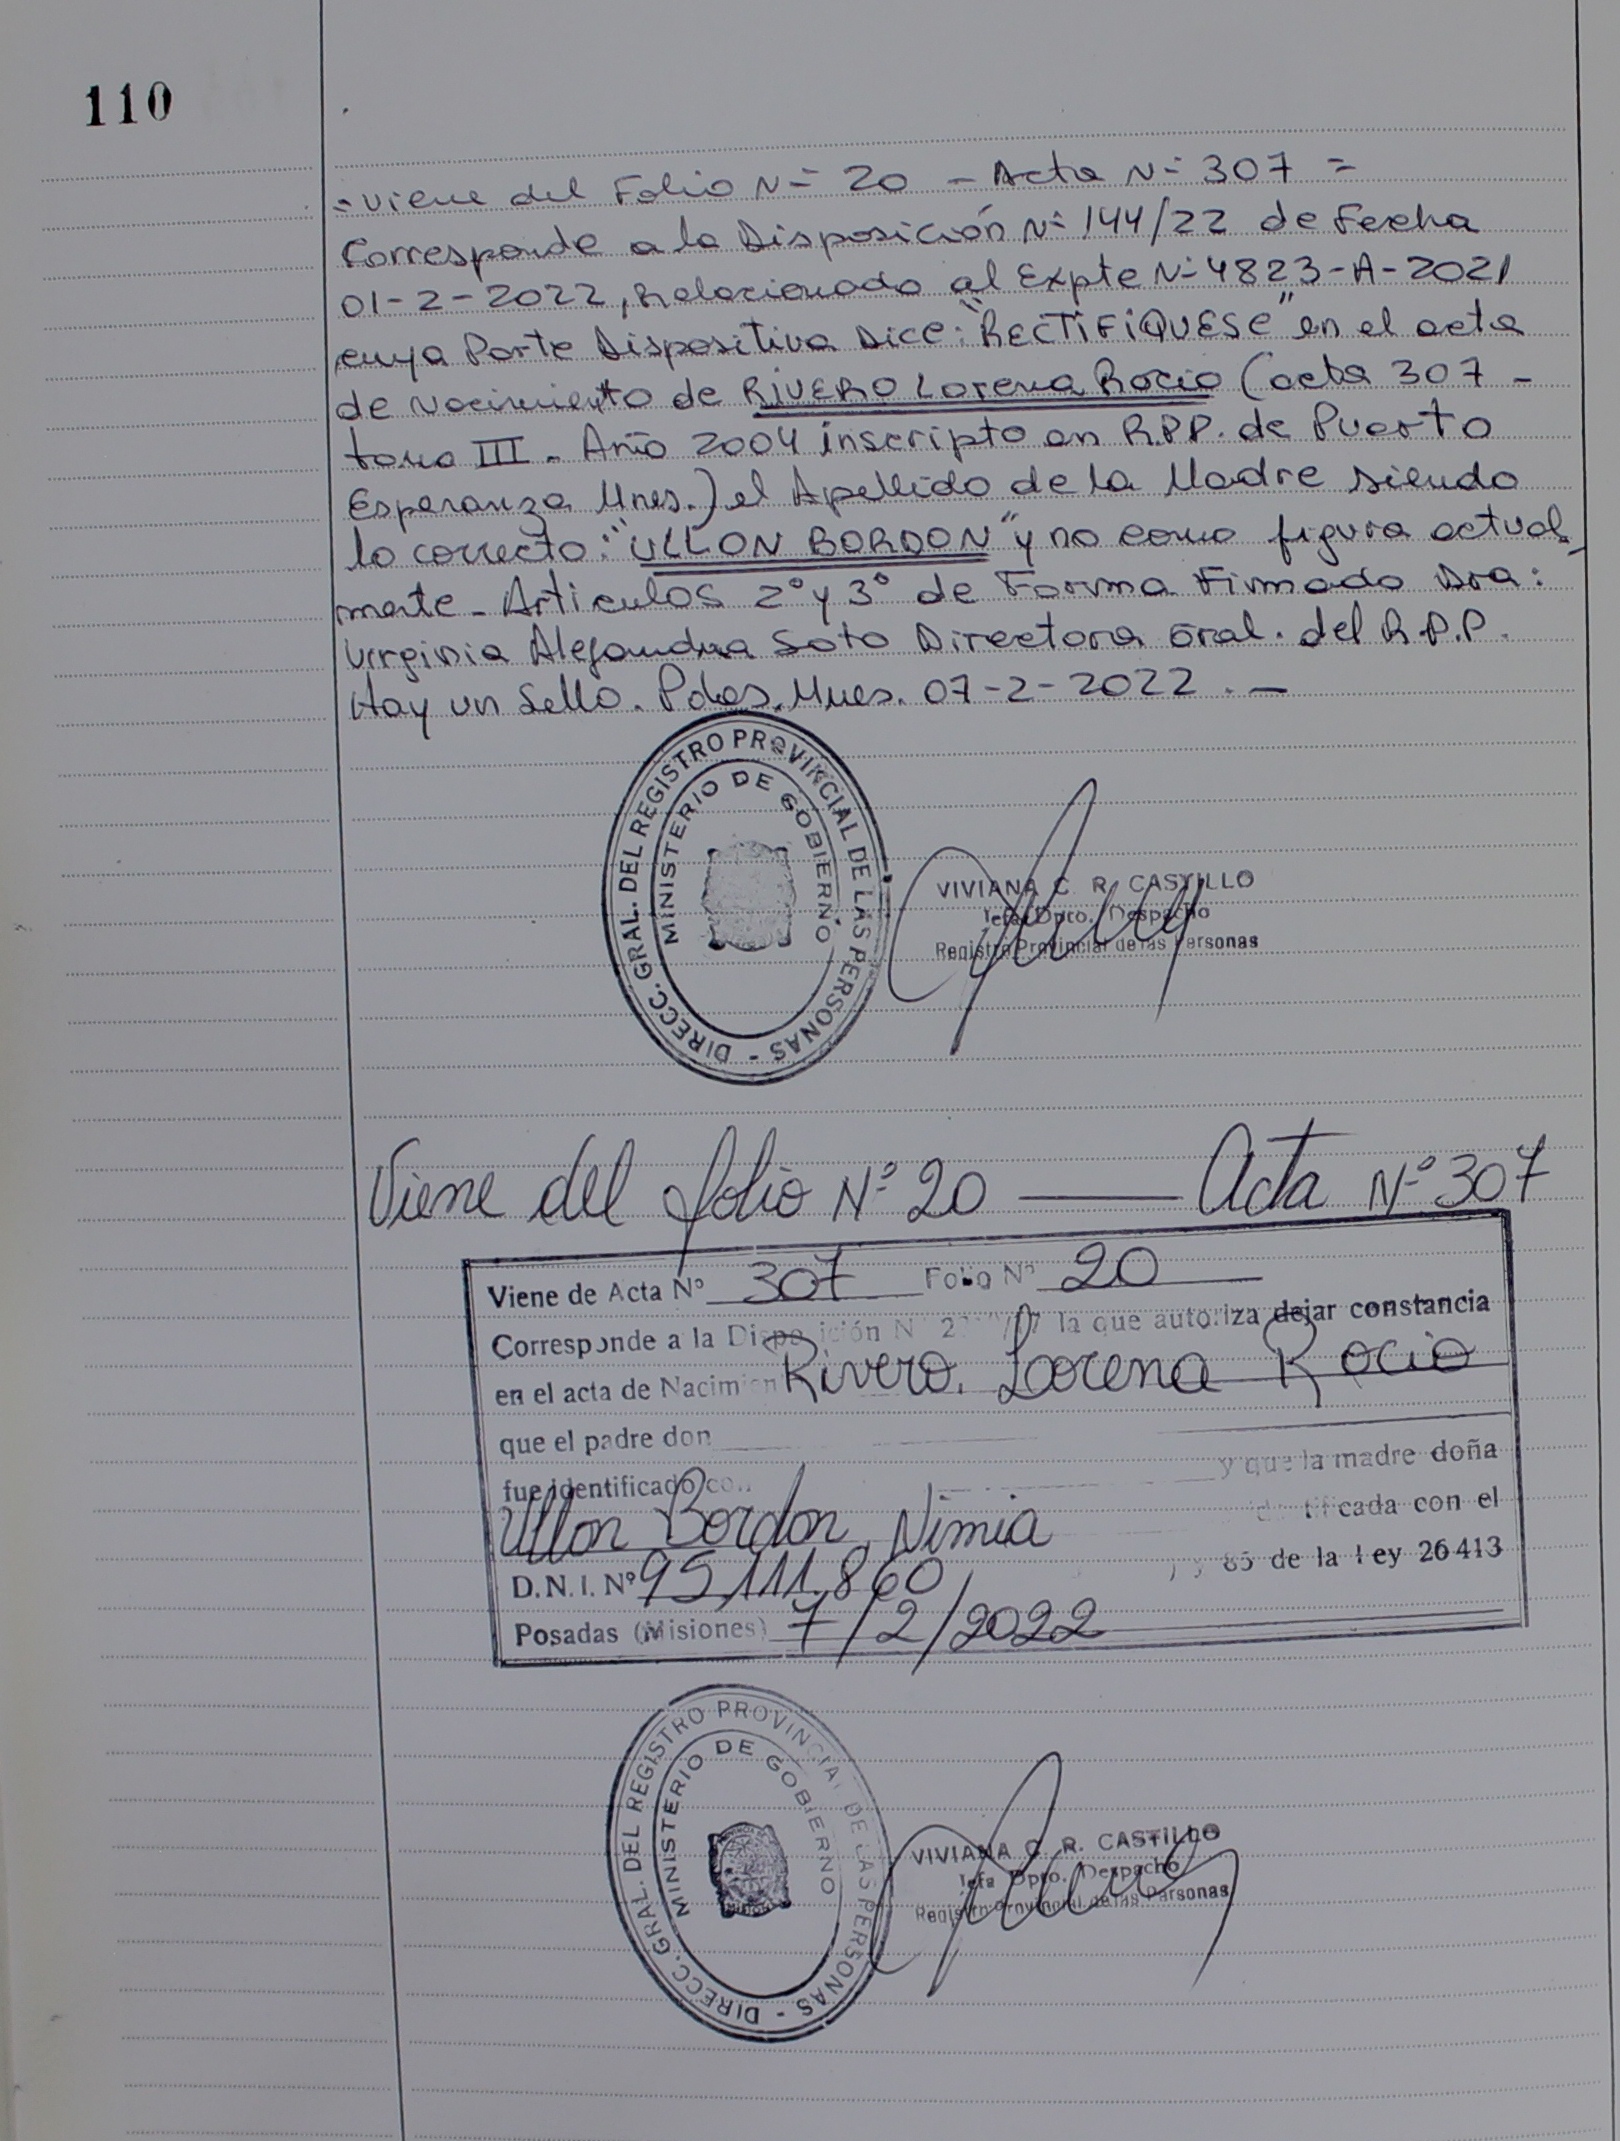 110
= Viene del Folio Nº 20 - Acta Nº 307 =
Corresponde a la Disposición Nº 144/22 de Fecha
01-2-2022, Relacionado al Expte Nº 4823-A-2021
cuya Parte Dispositiva Dice: "RECTIFIQUESE" en el acta
de Nacimiento de RIVERO Lorena Rocio (acta 307 -
tomo III - Año 2004 inscripto en R.P.P. de Puerto
Esperanza Mnes.) el Apellido de la Madre siendo
lo correcto: "ULLON BORDON" y no como figura actual
mente - Articulos 2º y 3º de Forma Firmado Dra:
Virginia Alejandra Soto Directora Gral. del R.P.P.
Hay un Sello. Pdas. Mnes. 07-2-2022. -
DIRECC. GRAL. DEL REGISTRO PROVINCIAL DE LAS PERSONAS -
MINISTERIO DE GOBIERNO
VIVIANA C. R. CASTILLO
Jefa Dpto. Despacho
Registro Provincial de las Personas
Viene del folio Nº 20 — Acta Nº 307
Viene de Acta Nº 307 Folio Nº 20
Corresponde a la Disposición N la que autoriza dejar constancia
en el acta de Nacimien Rivero, Lorena Rocio
que el padre don
y que la madre doña
fue identificado con
Ullon Bordon, Nimia tificada con el
D.N.I. Nº 95,111,860 y 85 de la Ley 26413
Posadas (Misiones) 7/2/2022
DIRECC. GRAL. DEL REGISTRO PROVINCIAL DE LAS PERSONAS -
MINISTERIO DE GOBIERNO
VIVIANA C. R. CASTILLO
Jefa Dpto. Despacho
Registro Provincial de las Personas